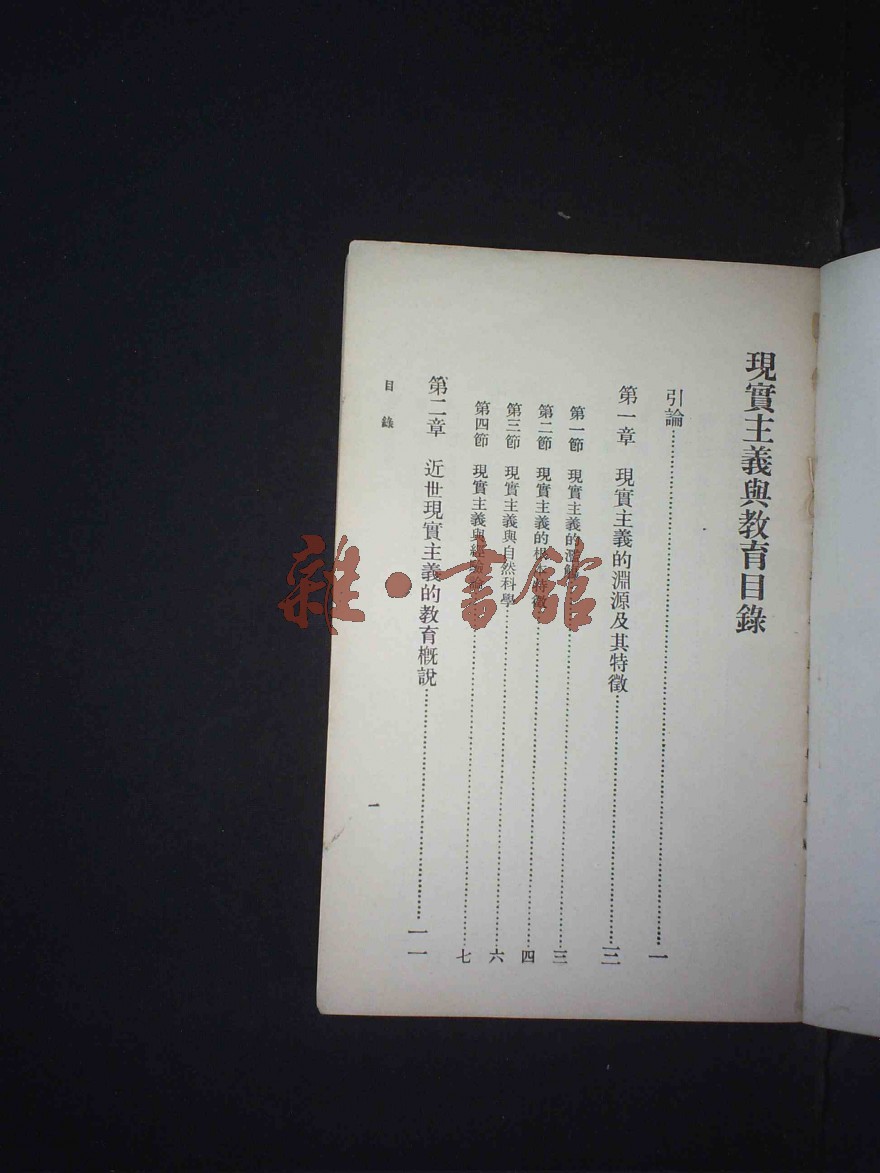 現實主義與教育目錄
引論……一
第一章 現實主義的淵源及其特徵……三
第一節 現實主義的淵解……三
第二節 現實主義的根本特徵……四
第三節 現實主義與自然科學……六
第四節 現實主義與經驗論……七
第二章 近世現實主義的教育概說……一一
目錄
一
雜·書館